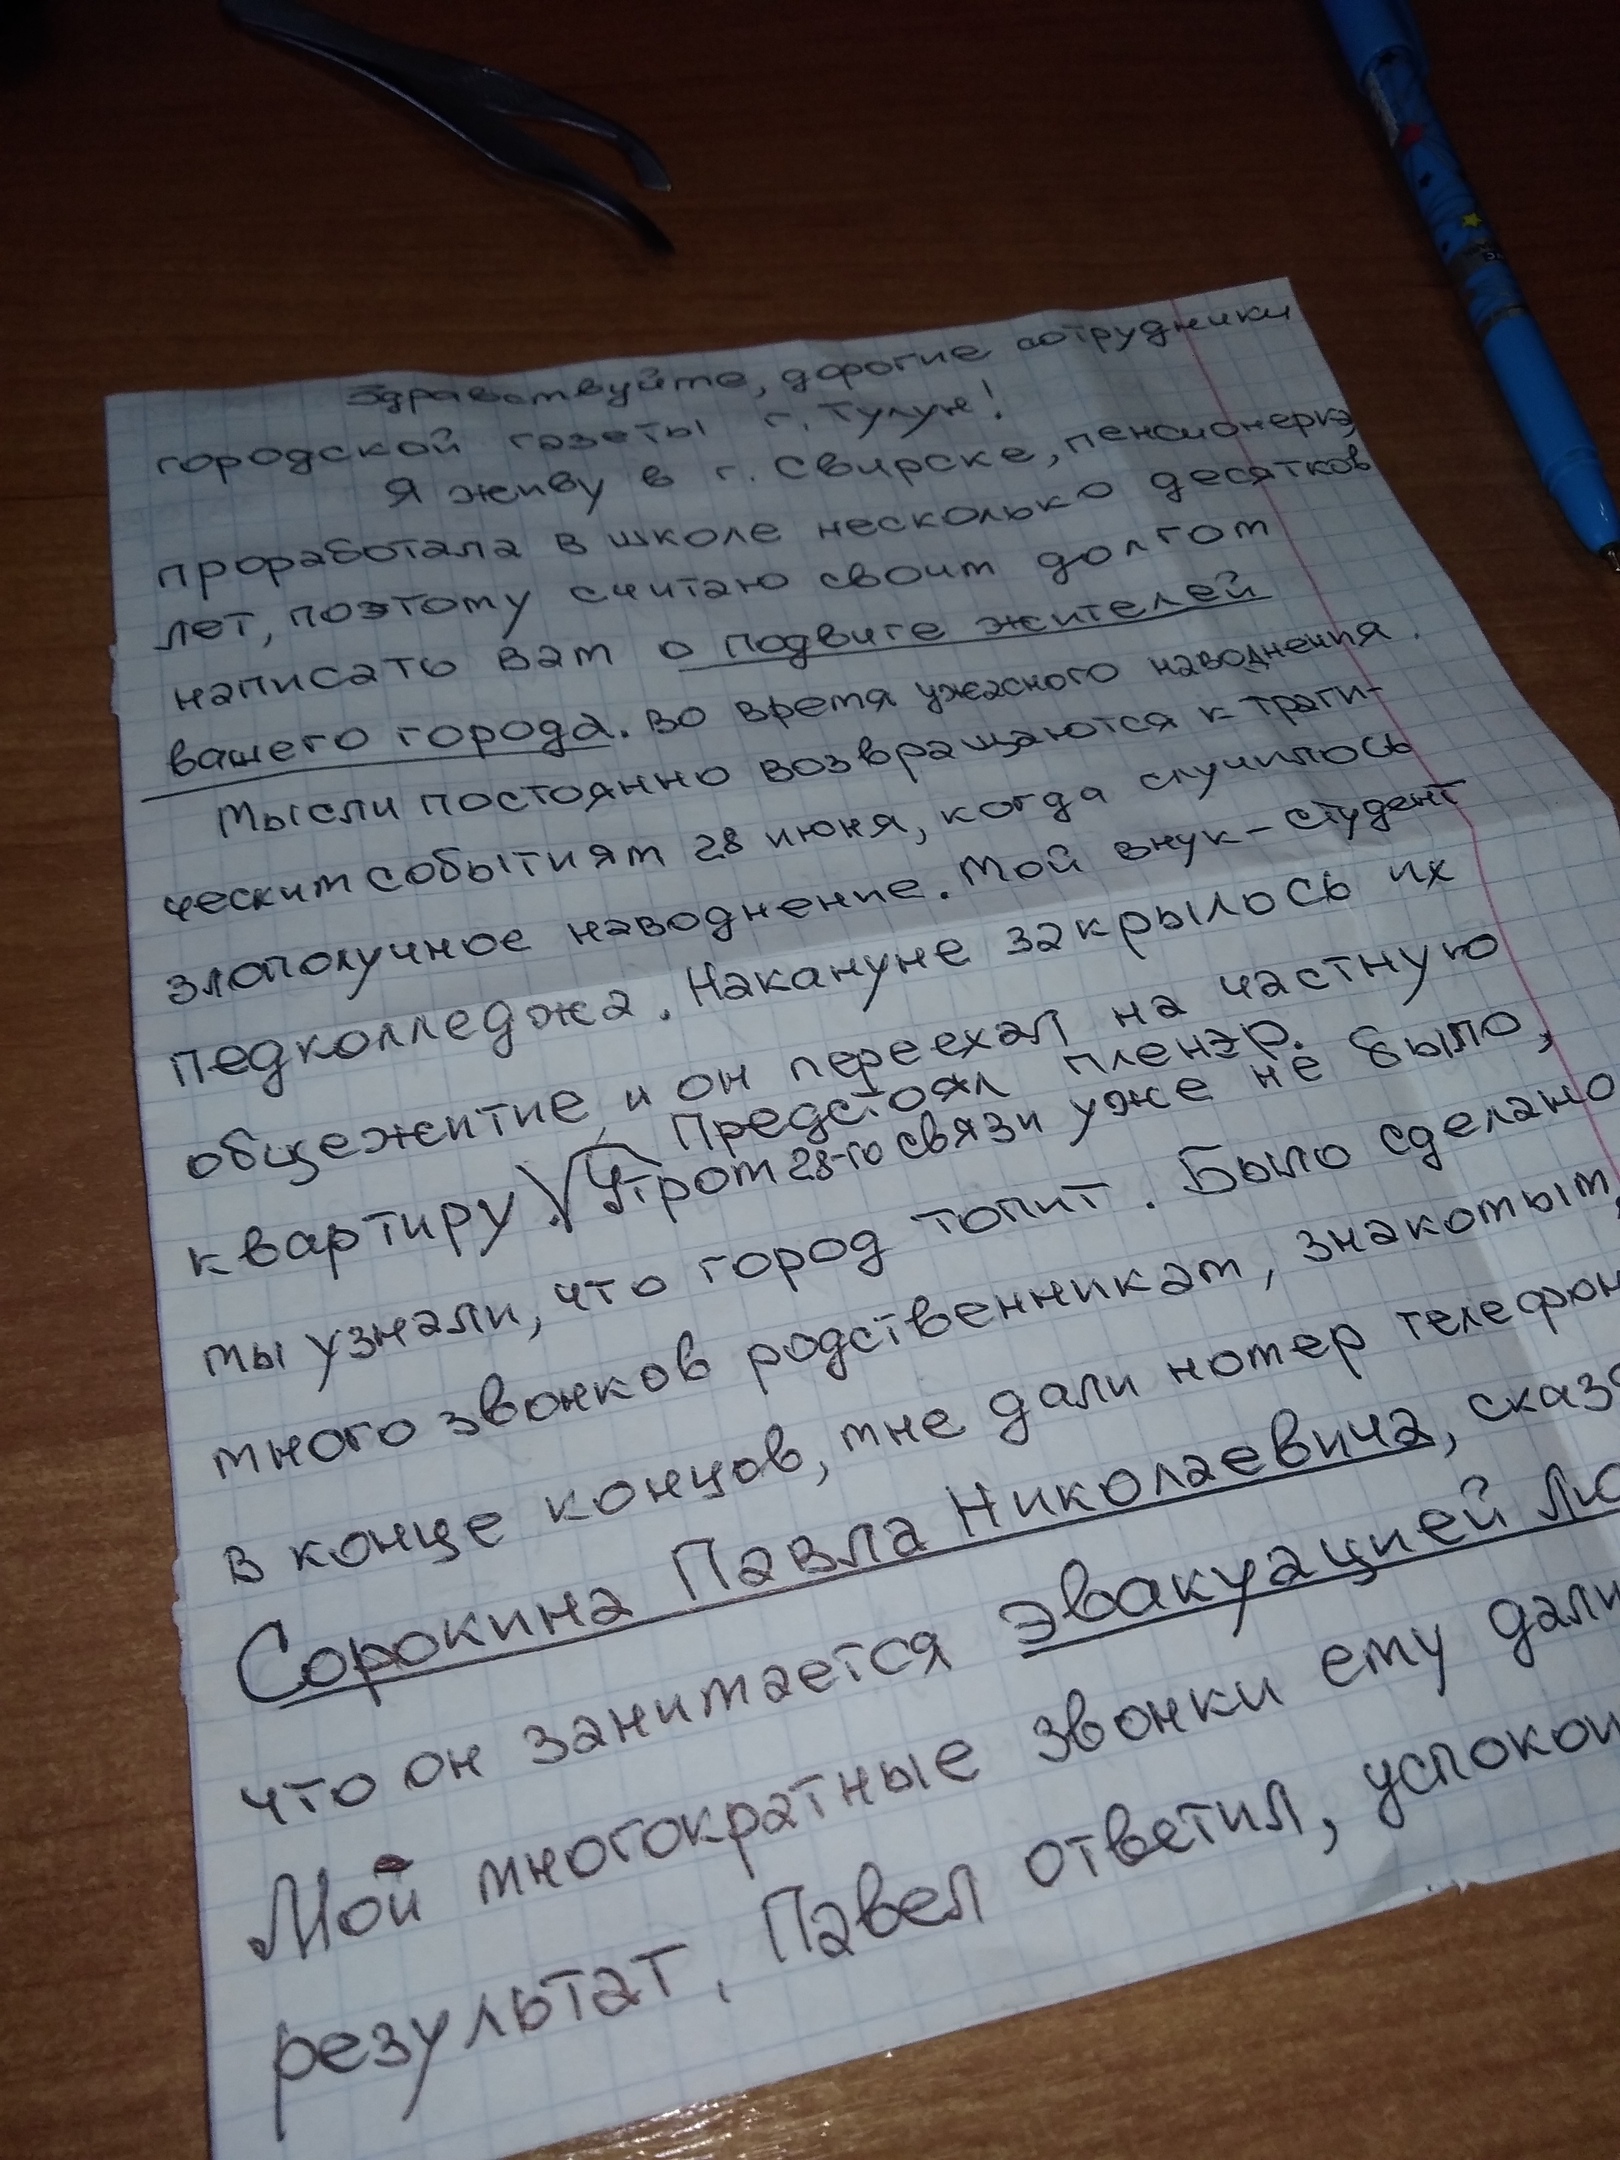 Здравствуйте, дорогие сотрудники
городской газеты г. Тулун!
Я живу в г. Свирске, пенсионерка,
проработала в школе несколько десятков
лет, поэтому считаю своим долгом
написать вам о подвиге жителей
вашего города. во время ужасного наводнения.
Мысли постоянно возвращаются к траги-
ческим событиям 28 июня, когда случилось
злополучное наводнение. Мой внук - студент
педколледжа. Накануне закрылось их
общежитие и он переехал на частную
Предстоял пленэр.
квартиру. √ Утром 28-го связи уже не было,
мы узнали, что город топит. Было сделано
много звонков родственникам, знакомым,
в конце концов, мне дали номер телефон
Сорокина Павла Николаевича, сказа
что он занимается эвакуацией лю
Мой многократные звонки ему дали
результат, Павел ответил, успокои